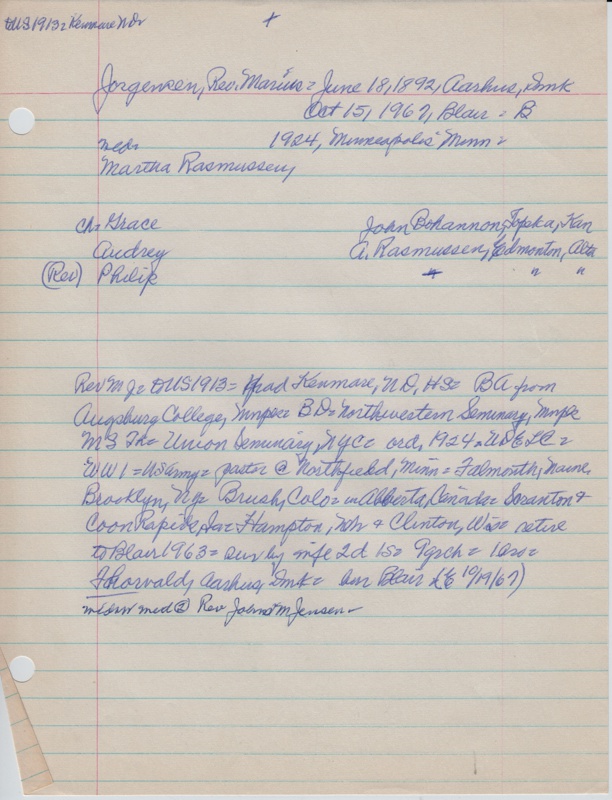 to US 1913 = Kenmare N D
Jorgensen, Rev. Marius = June 18, 1892, Aarhus, Dmk
Oct 15, 1967, Blair = B
med. 1924, Minneapolis Minn =
Martha Rasmussen,
ch = Grace John Bohannon, Topeka, Kan
Audrey A. Rasmussen, Edmonton, Alta
(Rev) Philip " " "
Rev MJ = to US 1913 = grad Kenmare, ND, HS = BA from
Augsburg College, Mnpe = BD = Northwestern Seminary, Mnpe
MS Th = Union Seminary, NYC = ord, 1924 = UDELC =
WW 1 = US Army = pastor @ Northfield, Minn = Falmouth, Maine
Brooklyn, NY = Brush, Colo = in Alberta, Canada = Soranton +
Coon Rapids, Ia = Hampton, Nbr + Clinton, Wis = retire
to Blair 1963 = sur by wife 2d 1s = 9grch = 1bro =
Thorvald, Aarhus, Dmk = bur Blair 10/19/67)
med @ Rev John M Jensen